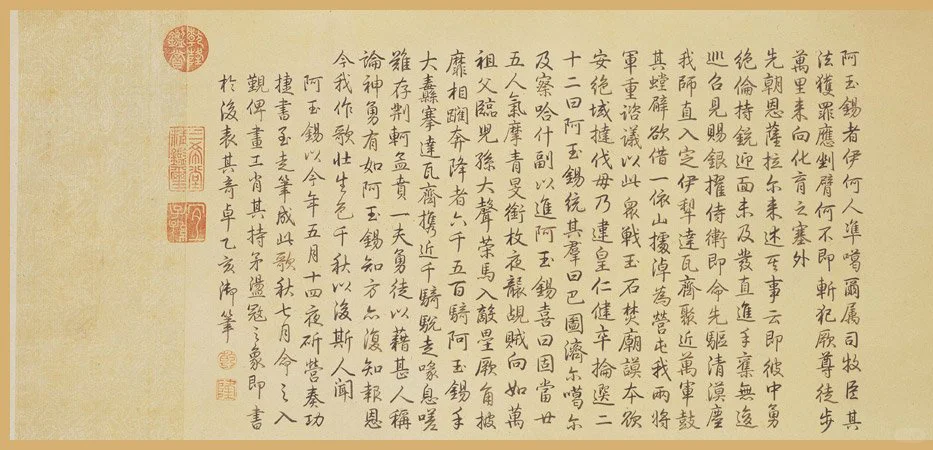 阿玉錫者伊何人準噶爾属司牧臣其
法獲罪應剉臂何不即斬犯厥尊徒步
萬里来向化育之塞外
先朝恩薩拉尔来述其事云即彼中勇
絕倫持銃迎面未及發直進手奪無逡
巡召見賜銀擢侍衛即命先驅清漠塵
我師直入定伊犁達瓦齊聚近萬軍鼓
其螳臂欲借一依山據淖為營屯我兩將
軍重諮議以此眾戰玉石焚廟謨本欲
安絕域撻伐毋乃違皇仁健卒掄選二
十二曰阿玉錫統其羣曰巴圖濟尔噶尔
及察哈什副以進阿玉錫喜曰固當廿
五人氣摩青旻銜枚夜襲覘賊向如萬
祖父臨兒孫大聲策馬入敵壘厥角披
靡相躪奔降者六千五百騎阿玉錫手
大纛搴達瓦齊携近千騎駾走喙息嗟
難存荆軻孟賁一夫勇徒以藉甚人稱
論神勇有如阿玉錫知方亦復知報恩
今我作歌壯生色千秋以後斯人聞
阿玉錫以今年五月十四夜斫營奏功
捷書至走筆成此歌秋七月命之入
覲俾畫工肖其持矛盪寇之象即書
於後表其奇卓乙亥御筆
乾
隆
乾隆鑑賞
三希堂精鑑璽
宜子孫